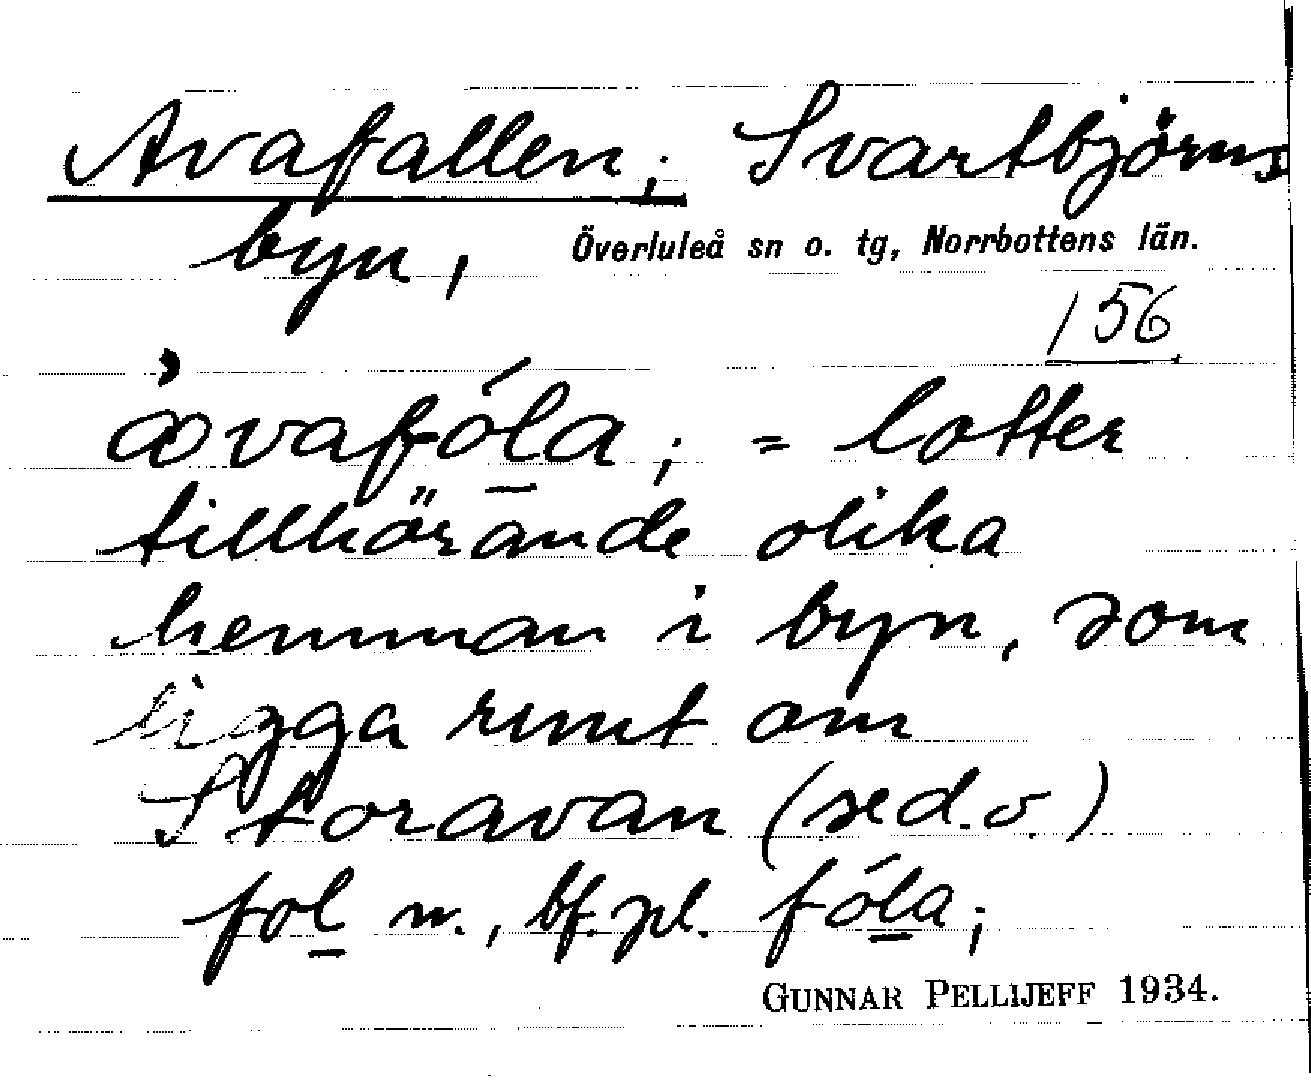 Avafallen; Svartbjörns
byn, Överluleå sn o. tg, Norrbottens län.
156.
åvafóla; = lotter
tillhörande olika
hemman i byn, som
ligga runt om
Storavan (se d.o.)
fol n., bf. pl. fóla;
GUNNAR PELLIJEFF 1934.